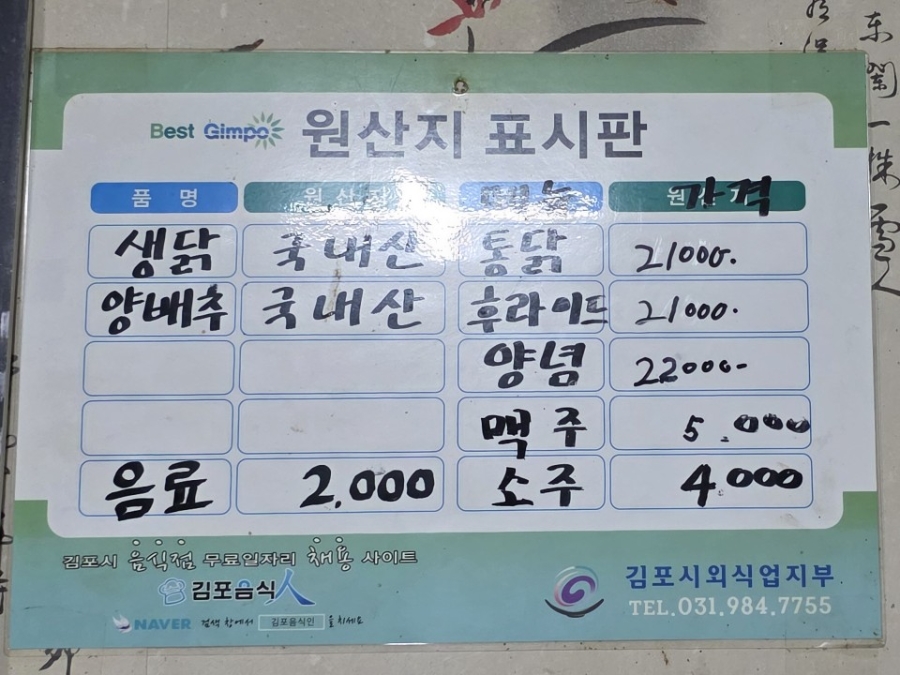 Best Gimpo 원산지 표시판
품 명 원산지 메뉴 가격
생닭 국내산 통닭 21000.
양배추 국내산 후라이드 21000.
양념 22000-
맥주 5.000
음료 2.000 소주 4.000
김포시 음식점 무료일자리 채용 사이트
김포음식人
NAVER 검색 창에서 김포음식인 을 치세요
김포시외식업지부
TEL.031.984.7755
东阑一株雪人